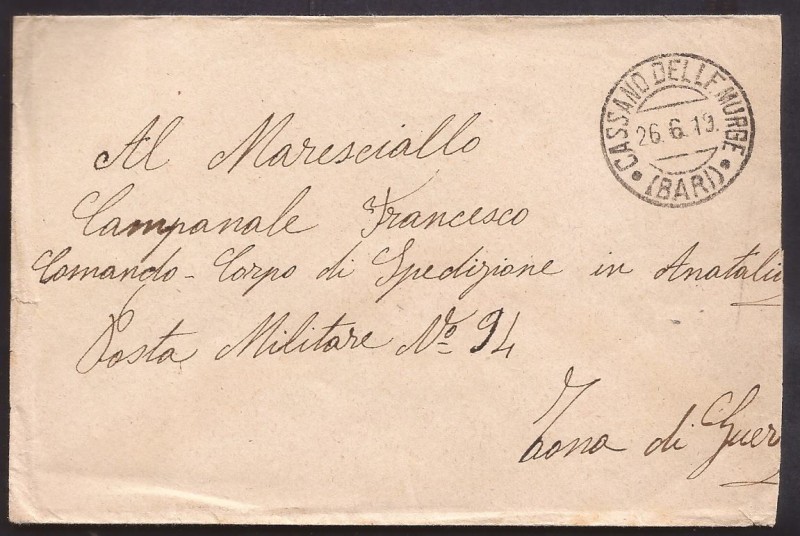 CASSANO DELLE MURGE
26.6.19.
(BARI)
Al Maresciallo
Campanale Francesco
Comando - Corpo di Spedizione in Anatalia
Posta Militare No 94
Zona di Guer